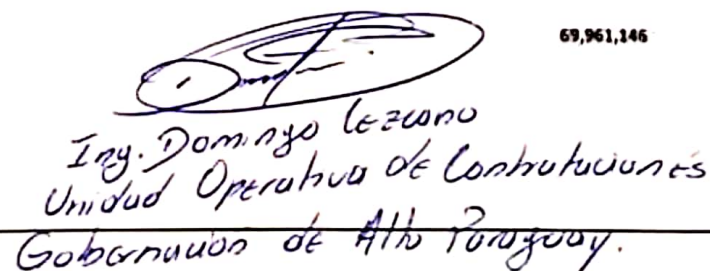 69,961,146
Ing. Domingo Lezcano
Unidad Operativa de Contrataciones
Gobernación de Alto Paraguay.